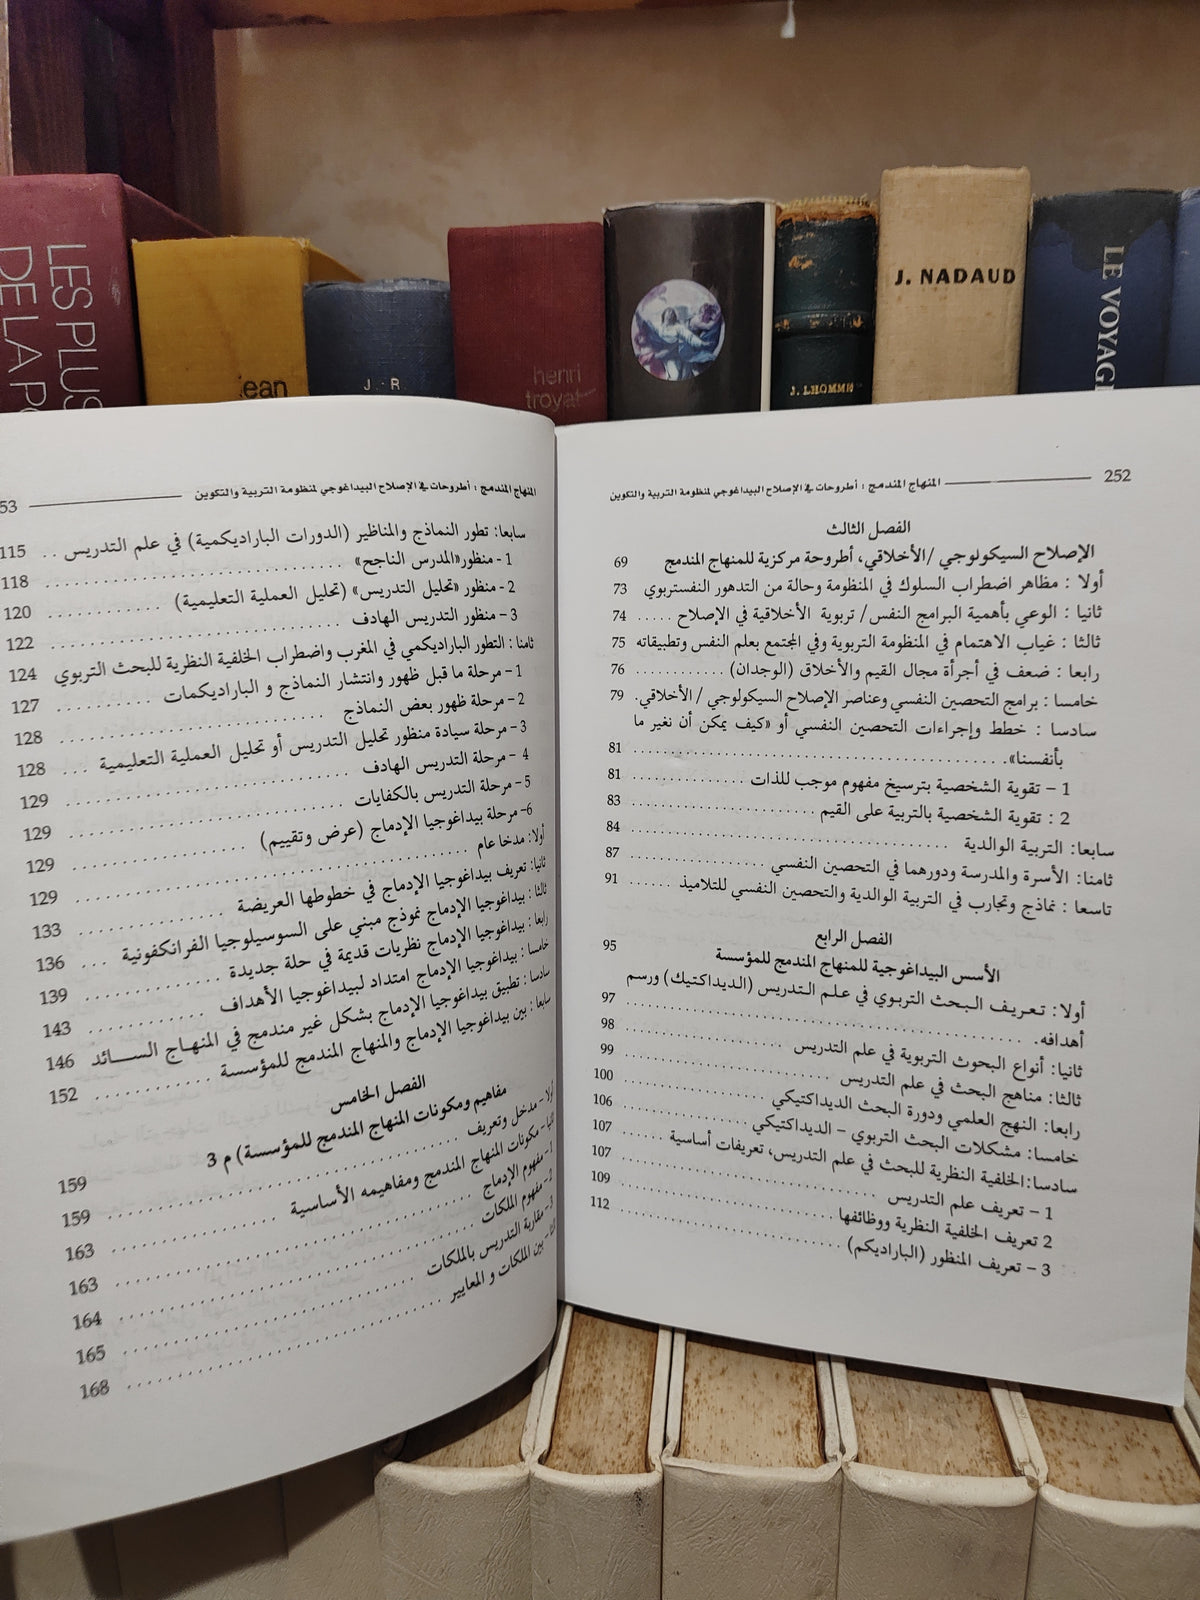 LES PLUS
DE LA
ean
J.-R.
henri
troyat
J. LHOMME
J. NADAUD
LE VOYAG
252
المنهاج المندمج : أطروحات في الإصلاح البيداغوجي لمنظومة التربية والتكوين
الفصل الثالث
الإصلاح السيكولوجي /الأخلاقي، أطروحة مركزية للمنهاج المندمج 69
أولا : مظاهر اضطراب السلوك في المنظومة وحالة من التدهور النفستربوي 73
ثانيا : الوعي بأهمية البرامج النفس/ تربوية الأخلاقية في الإصلاح ..... 74
ثالثا : غياب الاهتمام في المنظومة التربوية وفي المجتمع بعلم النفس وتطبيقاته 75
رابعا : ضعف في أجرأة مجال القيم والأخلاق (الوجدان) ............ 76
خامسا : برامج التحصين النفسي وعناصر الإصلاح السيكولوجي / الأخلاقي. 79
سادسا : خطط وإجراءات التحصين النفسي أو «كيف يمكن أن نغير ما
بأنفسنا». ........................................ 81
1 – تقوية الشخصية بترسيخ مفهوم موجب للذات ............ 81
2 : تقوية الشخصية بالتربية على القيم ..................... 83
سابعا: التربية الوالدية .................................. 84
ثامنا: الأسرة والمدرسة ودورهما في التحصين النفسي ............ 87
تاسعا : نماذج وتجارب في التربية الوالدية والتحصين النفسي للتلاميذ ...... 91
الفصل الرابع
الأسس البيداغوجية للمنهاج المندمج للمؤسسة 95
أولا: تعريف البحث التربوي في علم التدريس (الديداكتيك) ورسم
أهدافه. ........................................ 97
ثانيا: أنواع البحوث التربوية في علم التدريس .................. 98
ثالثا: مناهج البحث في علم التدريس ........................ 99
رابعا: النهج العلمي ودورة البحث الديداكتيكي .................. 100
خامسا: مشكلات البحث التربوي – الديداكتيكي .................. 106
سادسا:الخلفية النظرية للبحث في علم التدريس، تعريفات أساسية ...... 107
1 – تعريف علم التدريس .............................. 107
2 تعريف الخلفية النظرية ووظائفها ........................ 109
3 – تعريف المنظور (الباراديكم) ........................ 112
المنهاج المندمج : أطروحات في الإصلاح البيداغوجي لمنظومة التربية والتكوين
53
سابعا: تطور النماذج والمناظير (الدورات الباراديكمية) في علم التدريس .. 115
1 - منظور«المدرس الناجح» .............................. 118
2 - منظور «تحليل التدريس» (تحليل العملية التعليمية) ............ 120
3 – منظور التدريس الهادف .............................. 122
ثامنا : التطور الباراديكمي في المغرب واضطراب الخلفية النظرية للبحث التربوي 124
1 – مرحلة ما قبل ظهور وانتشار النماذج و الباراديكمات .......... 127
2 – مرحلة ظهور بعض النماذج .......................... 128
3 – مرحلة سيادة منظور تحليل التدريس أو تحليل العملية التعليمية ... 128
4 – مرحلة التدريس الهادف .............................. 129
5 – مرحلة التدريس بالكفايات ............................ 129
6– مرحلة بيداغوجيا الإدماج (عرض وتقييم) .................. 129
أولا: مدخا عام .................................... 129
ثانيا: تعريف بيداغوجيا الإدماج في خطوطها العريضة ............ 133
ثالثا : بيداغوجيا الإدماج نموذج مبني على السوسيلوجيا الفرانكفونية ... 136
رابعا : بيداغوجيا الإدماج نظريات قديمة في حلة جديدة ............ 139
خامسا : بيداغوجيا الإدماج امتداد لبيداغوجيا الأهداف ............ 143
سادسا : تطبيق بيداغوجيا الإدماج بشكل غير مندمج في المنهـاج الســـائد 146
سابعا : بين بيداغوجيا الإدماج والمنهاج المندمج للمؤسسة .......... 152
الفصل الخامس
مفاهيم ومكونات المنهاج المندمج للمؤسسة) م 3 159
أولا – مدخل وتعريف .............................. 159
ثانيا – مكونات المنهاج المندمج ومفاهيمه الأساسية ............ 163
1– مفهوم الإدماج .................................. 163
2– مفهوم الملكات .................................. 164
3– مقاربة التدريس بالملكات .......................... 165
بين الملكات و المعايير .............................. 168